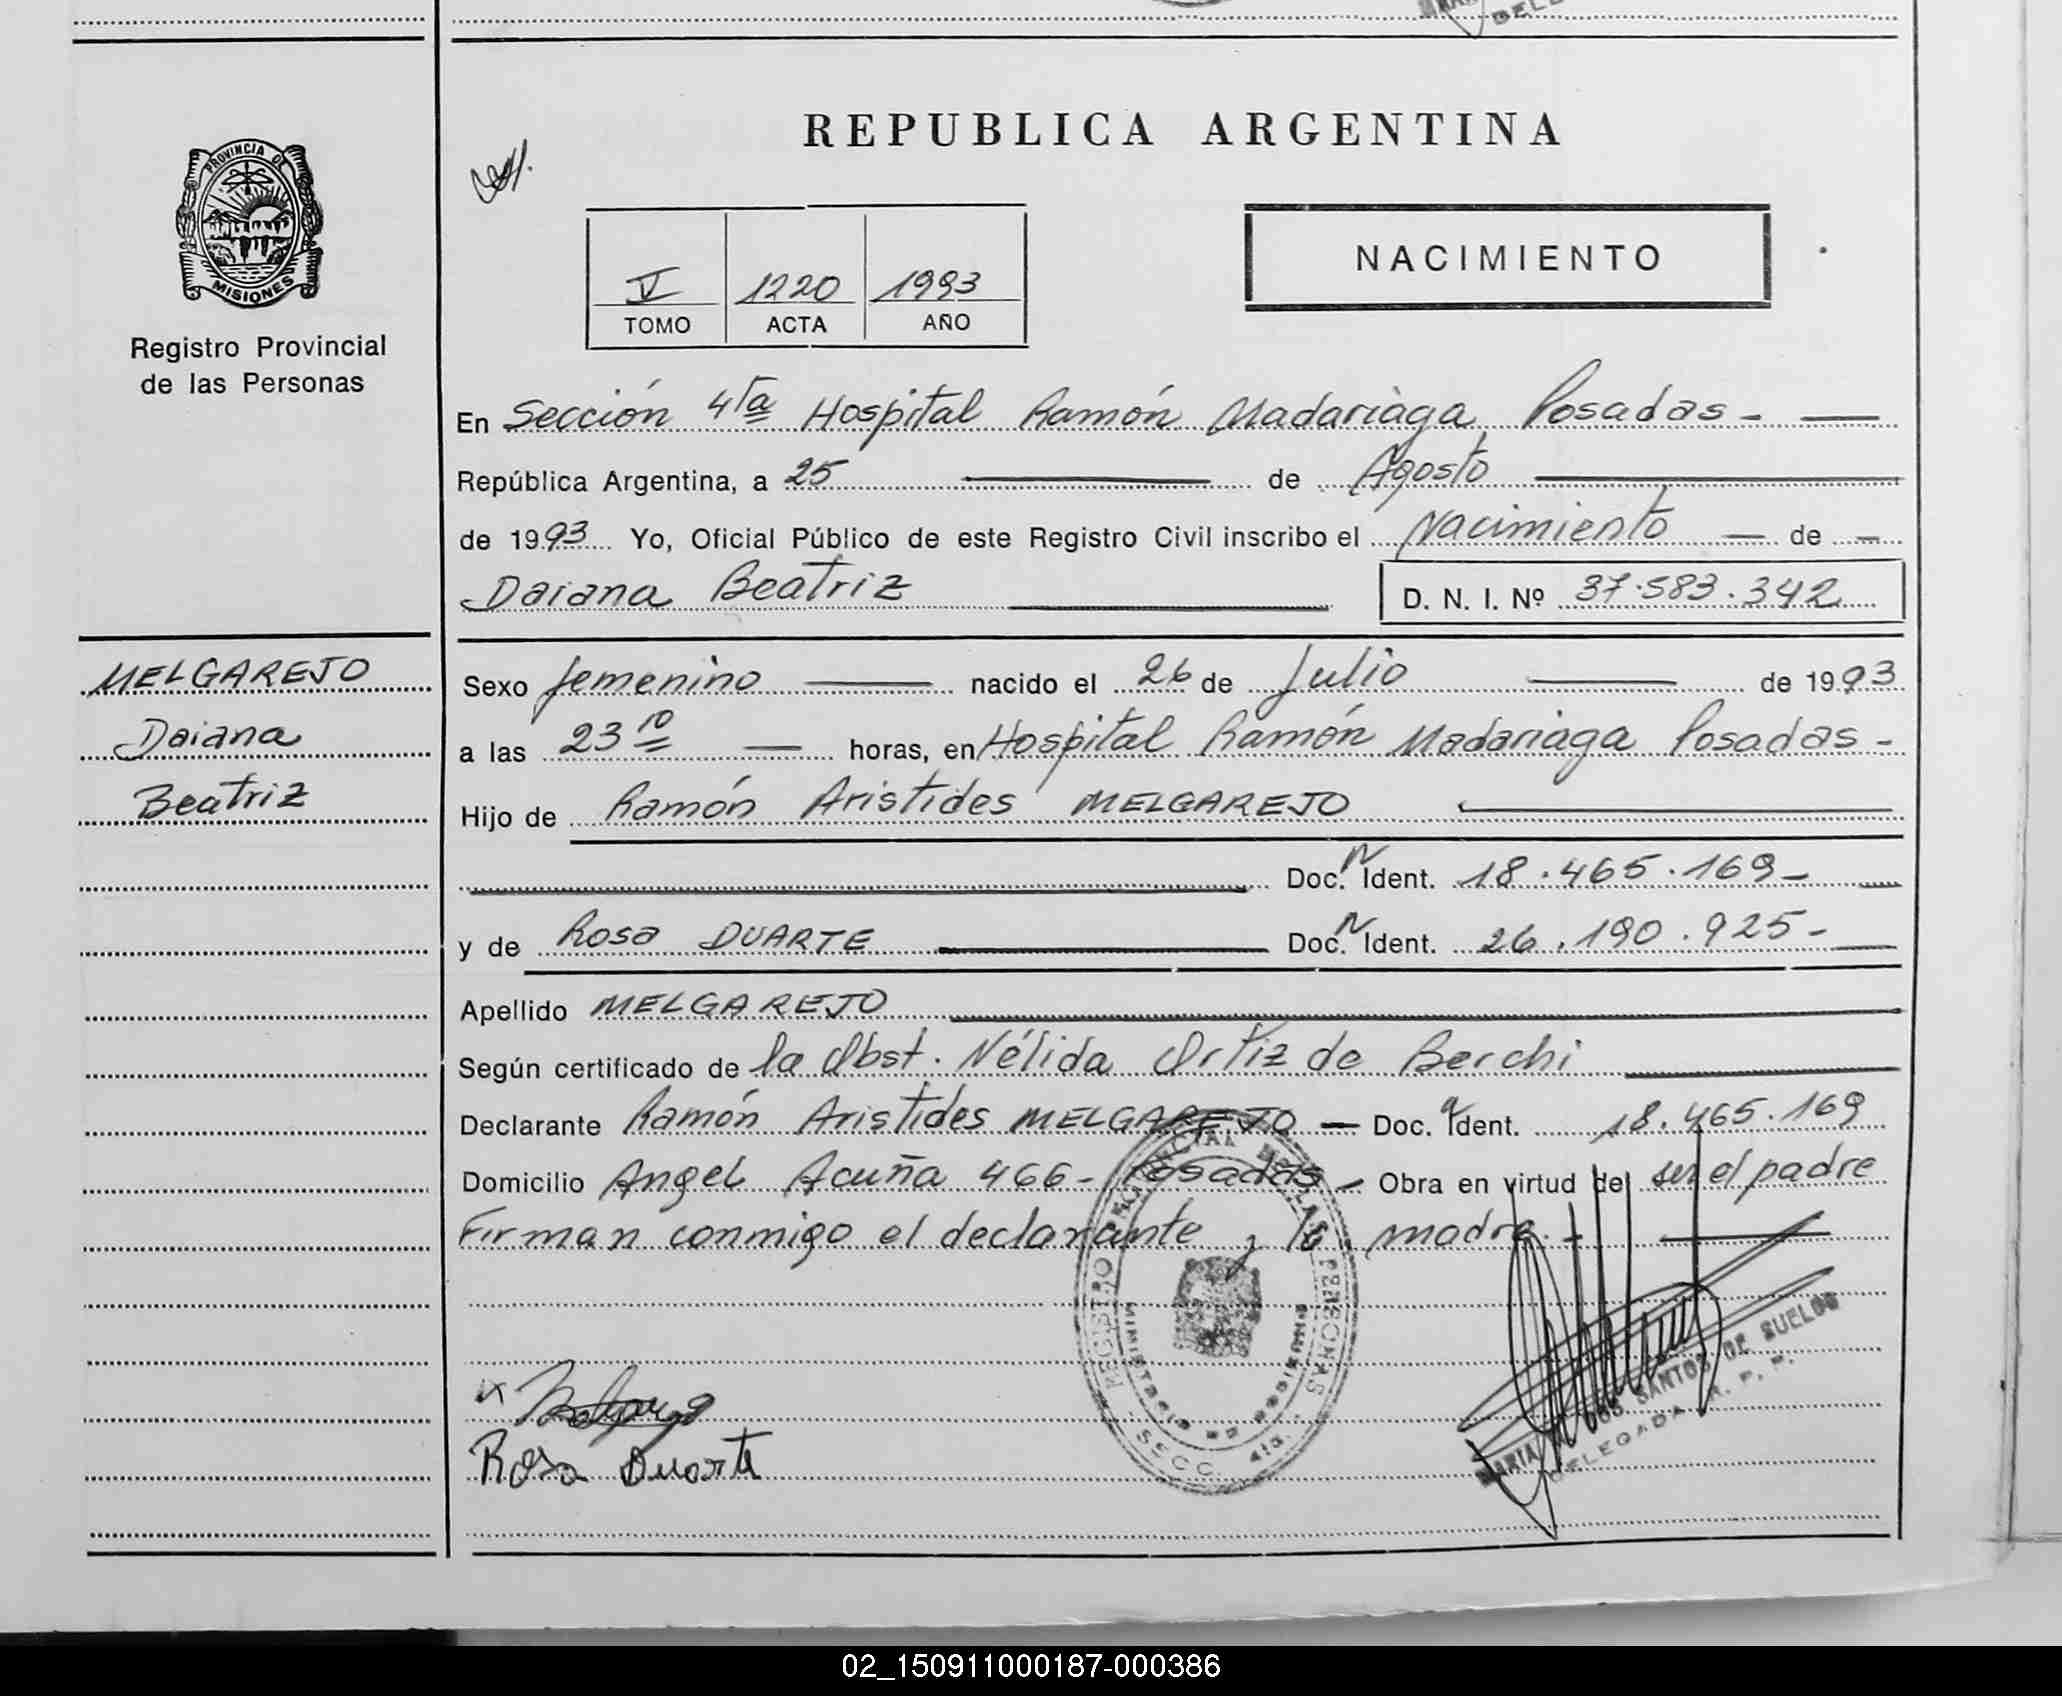 PROVINCIA DE
MISIONES
Registro Provincial
de las Personas
REPUBLICA ARGENTINA
NACIMIENTO
V 1220 1993
TOMO ACTA AÑO
En Sección 4ta Hospital Ramón Madariaga Posadas -
República Argentina, a 25 de Agosto
de 1993 Yo, Oficial Público de este Registro Civil inscribo el Nacimiento de
Daiana Beatriz D. N. I. Nº 37.583.342
MELGAREJO
Daiana
Beatriz
Sexo femenino nacido el 26 de Julio de 1993
a las 23 10 horas, en Hospital Ramón Madariaga Posadas -
Hijo de Ramón Aristides MELGAREJO
Doc. N Ident. 18.465.169 -
y de Rosa DUARTE Doc. N Ident. 26.190.925 -
Apellido MELGAREJO
Según certificado de la Obst. Nélida Ortiz de Berchi
Declarante Ramón Aristides MELGAREJO - Doc. Ident. 18.465.169
Domicilio Angel Acuña 466 - Posadas - Obra en virtud de ser el padre
Firman conmigo el declarante y la madre. -
REGISTRO PROVINCIAL DE LAS PERSONAS
MINISTERIO DE GOBIERNO
SECC. 4ta.
Rosa Duarte
MARIA DOS SANTOS DE SUELOS
DELEGADA R. P. P.
02_150911000187-000386